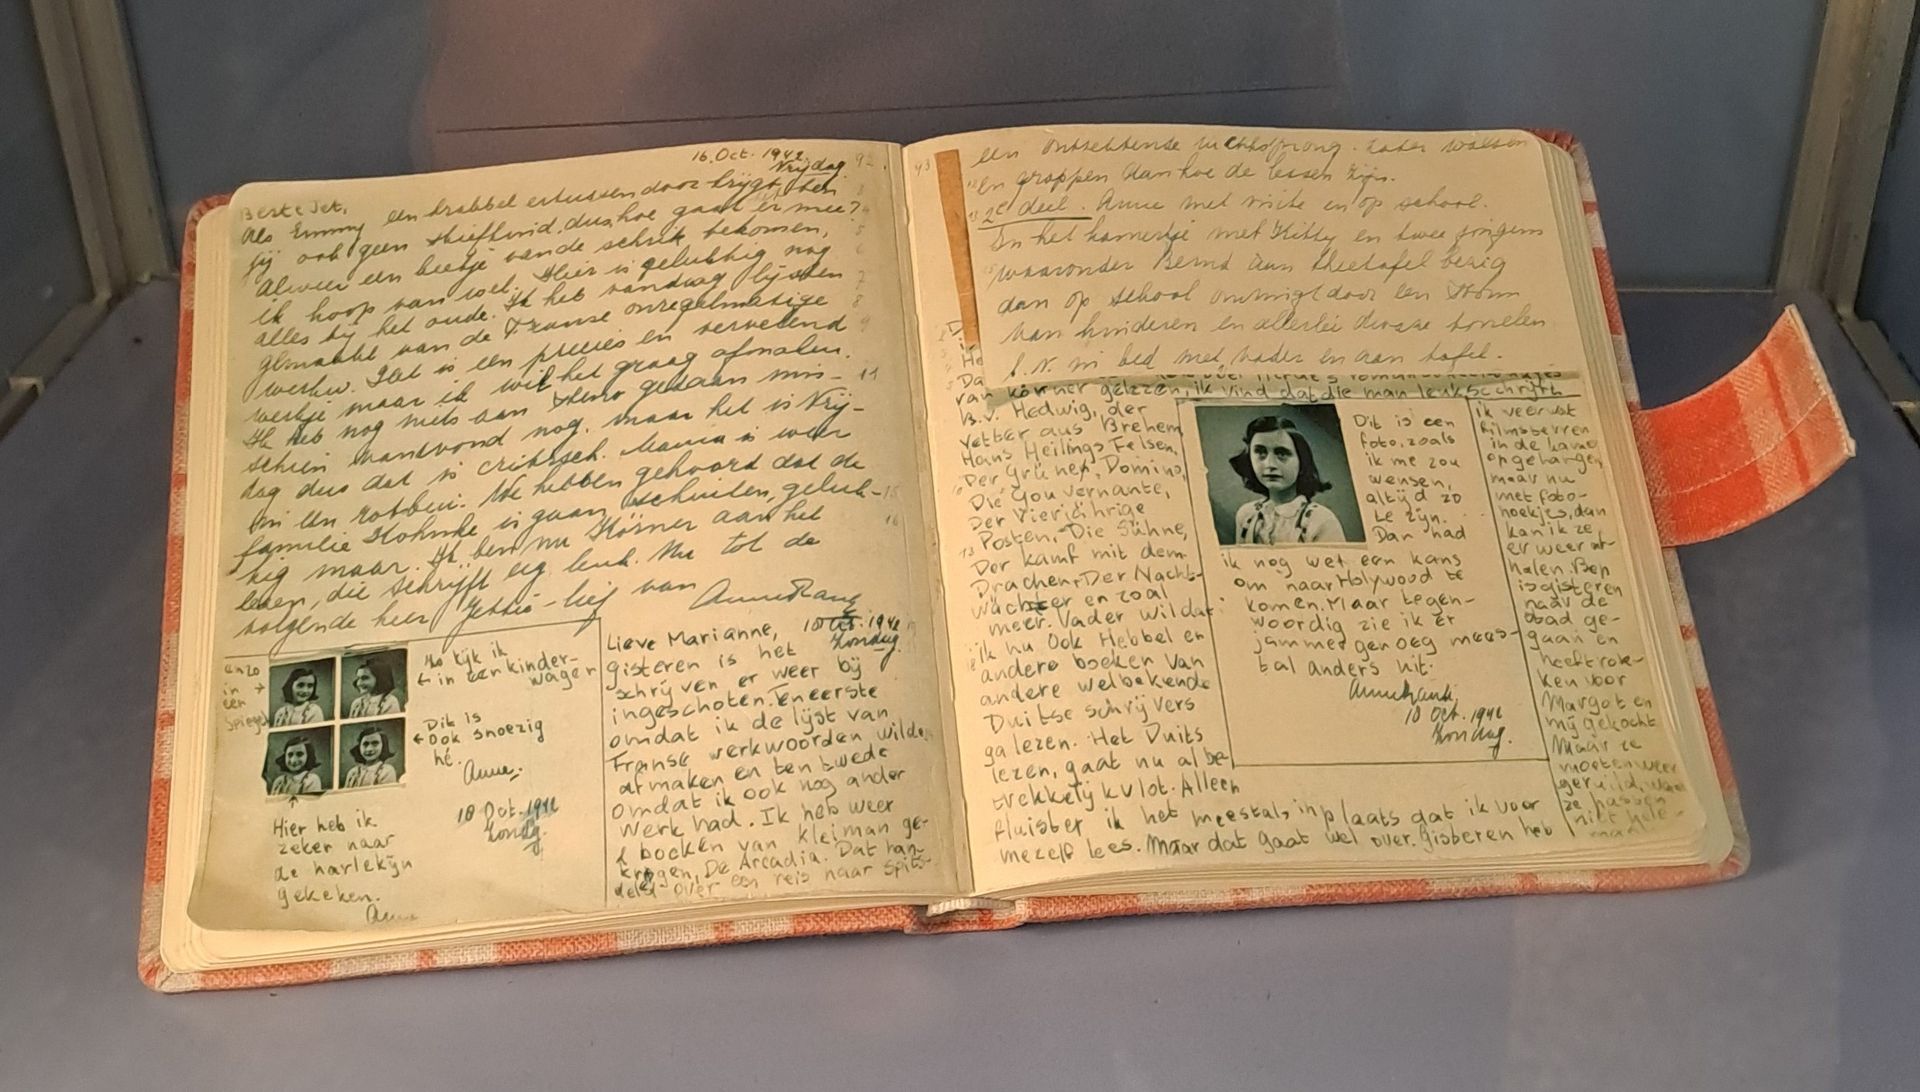 16. Oct. 1942.
Vrijdag.
92.
Beste Jet,
Als Emmy een krabbel ertussendoor krijgt, ben
jij ook geen stiefkind, dus hoe gaat er mee?
Alweer een beetje van de schrik bekomen,
ik hoop van wel. Hier is gelukkig nog
alles bij het oude. Ik heb vandaag lijsten
gemaakt van de Franse onregelmatige
werkw. Dat is een precies en vervelend
werkje maar ik wil het graag afmaken.
Ik heb nog niets aan steno gedaan mis-
schien vanavond nog, maar het is Vrij-
dag dus dat is critisch. Mama is weer
in een rotbui. We hebben gehoord dat de
familie is gaan schuilen, geluk-
kig maar. Ik ben nu Körner aan het
lezen, die schrijft erg leuk. Nu tot de
volgende keer Jettie-lief van
Anne Frank
enzo
in
een
spiegel
Ho kijk ik
in een kinder-
wagen
Dit is
ook snoezig
hé.
Anne.
18 Oct. 1942
Zondg.
Hier heb ik
zeker naar
de harlekijn
gekeken.
Anne
18 Oct. 1942
Zondag.
Lieve Marianne,
gisteren is het
schrijven er weer bij
ingeschoten. Ten eerste
omdat ik de lijst van
Franse werkwoorden wilde
afmaken en ten twede
omdat ik ook nog ander
werk had. Ik heb weer
2 boeken van Kleiman ge-
kregen, De Arcadia. Dat han-
deld over een reis naar Spits-
93
een ontzettende luchtsprong. Later walsen
en grappen dan hoe de lessen zijn.
2e deel. Anne met visite en op school.
In het kamertje met Kitty en twee jongens
waaronder Bernd aan theetafel bezig
dan op school omringt door een stoom
van kinderen en allerlei dwaze tonelen
b.v. in bed met vader en aan tafel.
van Körner gelezen, ik vind dat die man leuk schrijft
B.v. Hedwig, der
Vetter aus Bremen
Hans Heilings Felsen,
Der Grüner, Domino,
Die Gouvernante,
Der Vierjährige
Posten, Die Sühne,
Der Kamf mit dem
Drachen, Der Nacht-
wächter en zoal
meer. Vader wil dat
ik nu ook Hebbel en
andere boeken van
andere welbekende
Duitse schrijvers
ga lezen. Het Duits
lezen, gaat nu al be-
trekkelijk vlot. Alleen
fluister ik het meestal, in plaats dat ik voor
mezelf lees. Maar dat gaat wel over. Gisteren heb
Dit is een
foto, zoals
ik me zou
wensen,
altijd zo
te zijn.
Dan had
ik nog wel een kans
om naar Holywood te
komen. Maar tegen-
woordig zie ik er
jammer genoeg mees-
tal anders uit.
Anne Frank.
18 Oct. 1942
Zondag.
ik veer wat
filmsterren
in de kamer
opgehangen
maar nu
met foto-
hoekjes, dan
kan ik ze
er weer af-
halen. Bep
is gisteren
naar de
stad ge-
gaan en
heeft rok-
ken voor
Margot en
mij gekocht.
Maar ze
moeten weer
geruild, want
ze passen
niet hele-
maal.